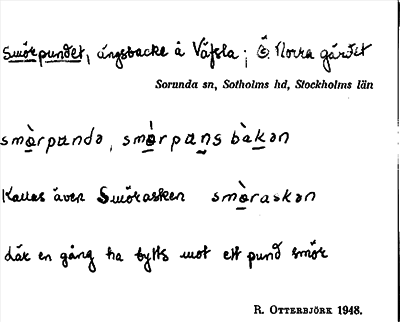 Smörpundet, ängsbacke å Väfsla; Ö. Norra gärdet
Sorunda sn, Sotholms hd, Stockholms län
smö̀rpundə, smö̀rpuns bàkən
Kallas även Smörasken smö̀raskən
där en gång ha bytts mot ett pund smör
R. OTTERBJÖRK 1948.